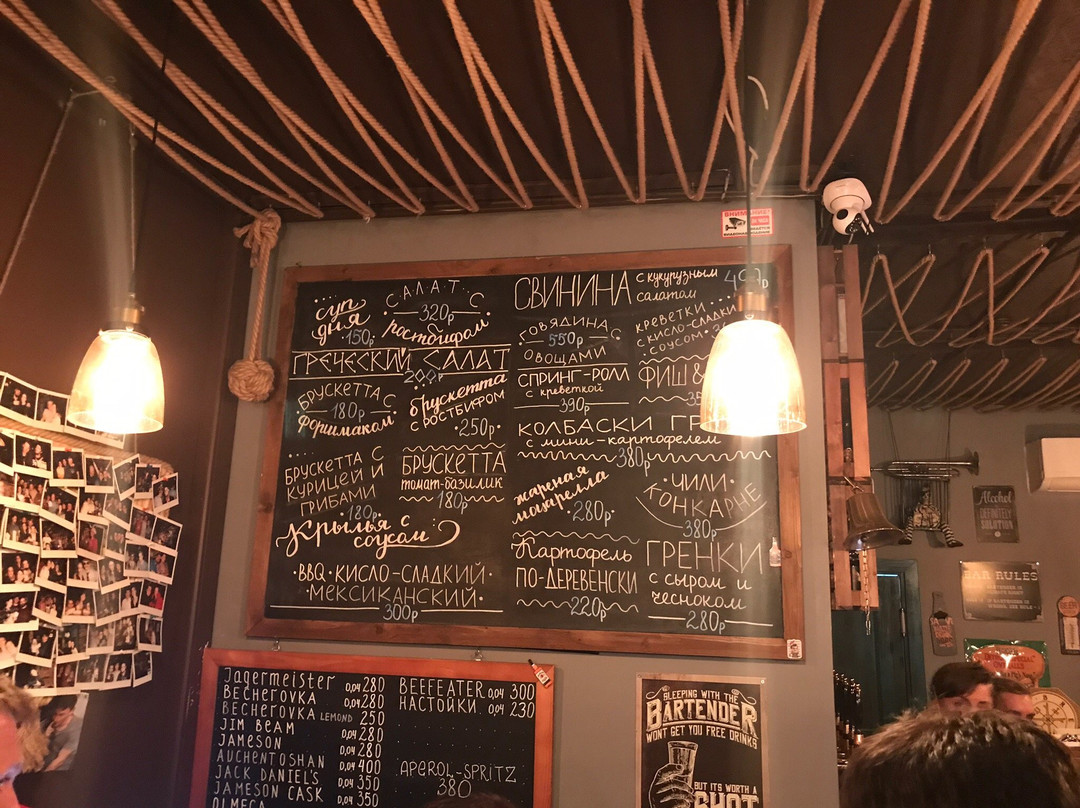 СУП
ДНЯ
150р
САЛАТ С
320р
ростбифом
ГРЕЧЕСКИЙ САЛАТ
200р
БРУСКЕТТА С
180р
форшмаком
брускетта
с РОСТБИФОМ
250р
БРУСКЕТТА С
КУРИЦЕЙ И
ГРИБАМИ
180р
БРУСКЕТТА
ТОМАТ-БАЗИЛИК
180р
Крылья с
соусом
BBQ · КИСЛО-СЛАДКИЙ
МЕКСИКАНСКИЙ
300р
СВИНИНА
с кукурузным
салатом
ГОВЯДИНА С
550р
ОВОЩАМИ
КРЕВЕТКИ
С КИСЛО-СЛАДКИ
СОУСОМ
СПРИНГ-РОЛЛ
с креветкой
390р
ФИШ &
КОЛБАСКИ ГР
с мини-картофелем
380р
жареная
моцарелла
280р
ЧИЛИ
КОНКАРНЕ
380р
Картофель
ПО-ДЕРЕВЕНСКИ
220р
ГРЕНКИ
с сыром и
чесноком
280р
ВНИМАНИЕ!
Jagermeister 0,04 280
BECHEROVKA 0,04 280
BECHEROVKA LEMOND 250
JIM BEAM 0,04 280
JAMESON 0,04 280
AUCHENTOSHAN 0,04 400
JACK DANIEL'S 0,04 350
JAMESON CASK 0,04 350
OLMECA
BEEFEATER 0,04 300
НАСТОЙКИ 0,04 230
APEROL-SPRITZ
380
SLEEPING WITH THE
BARTENDER
WONT GET YOU FREE DRINKS
BUT ITS WORTH A
SHOT
Alcohol
DEFINITELY
SOLUTION
BAR RULES
BEER